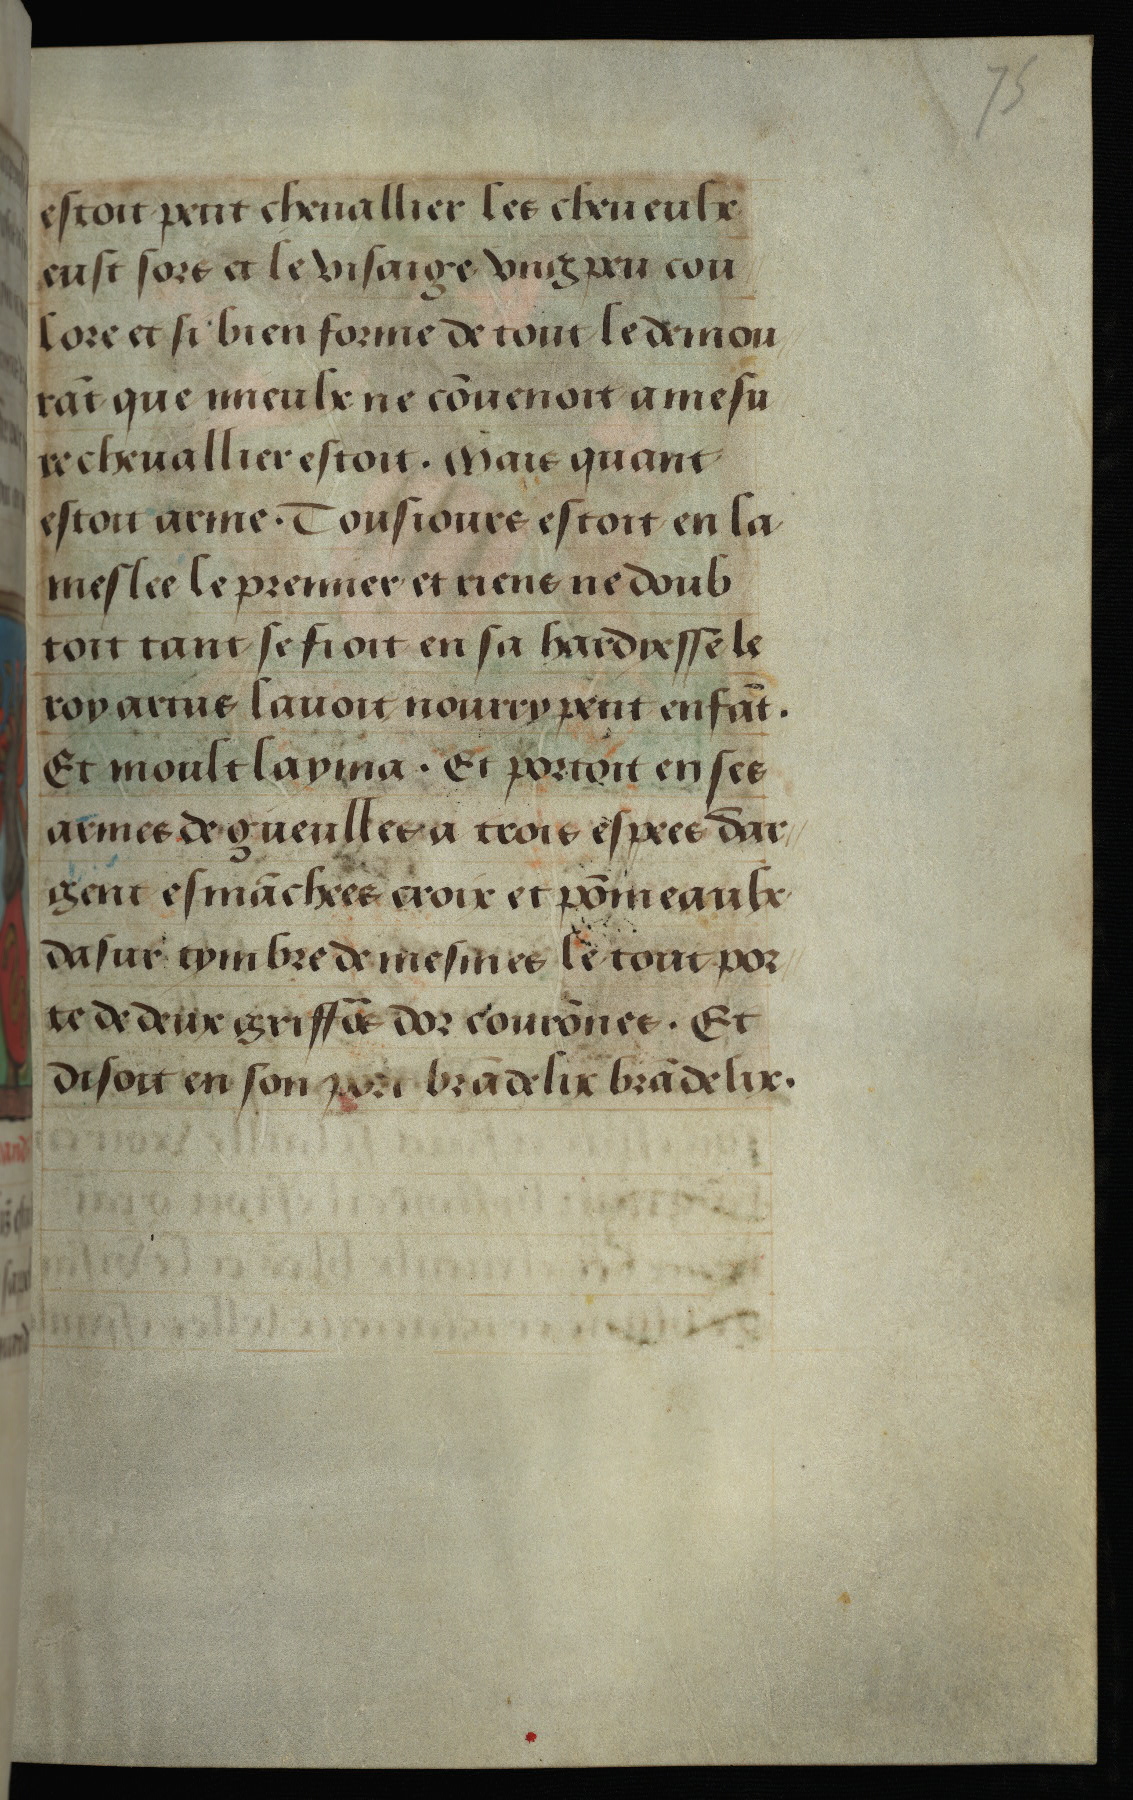 75
estoit petit cheuallier les cheueulx
eust sors et le visaige vng peu cou
lore et si bien forme de tout le demou
rāt que mieulx ne cōuenoit a mesu
re cheuallier estoit. Mais quant
estoit arme. Tousiours estoit en la
meslee le premier et riens ne doub
toit tant se fioit en sa hardiesse le
roy artus lauoit nourry petit enfāt.
Et moult layma. Et portoit en ses
armes de gueulles a trois espees dar
gent esmāchees croix et pōmeaulx
dasur tymbre de mesmes le tout por
te de deux griffōs dor courōnes. Et
disoit en son port brādelix brādelix.